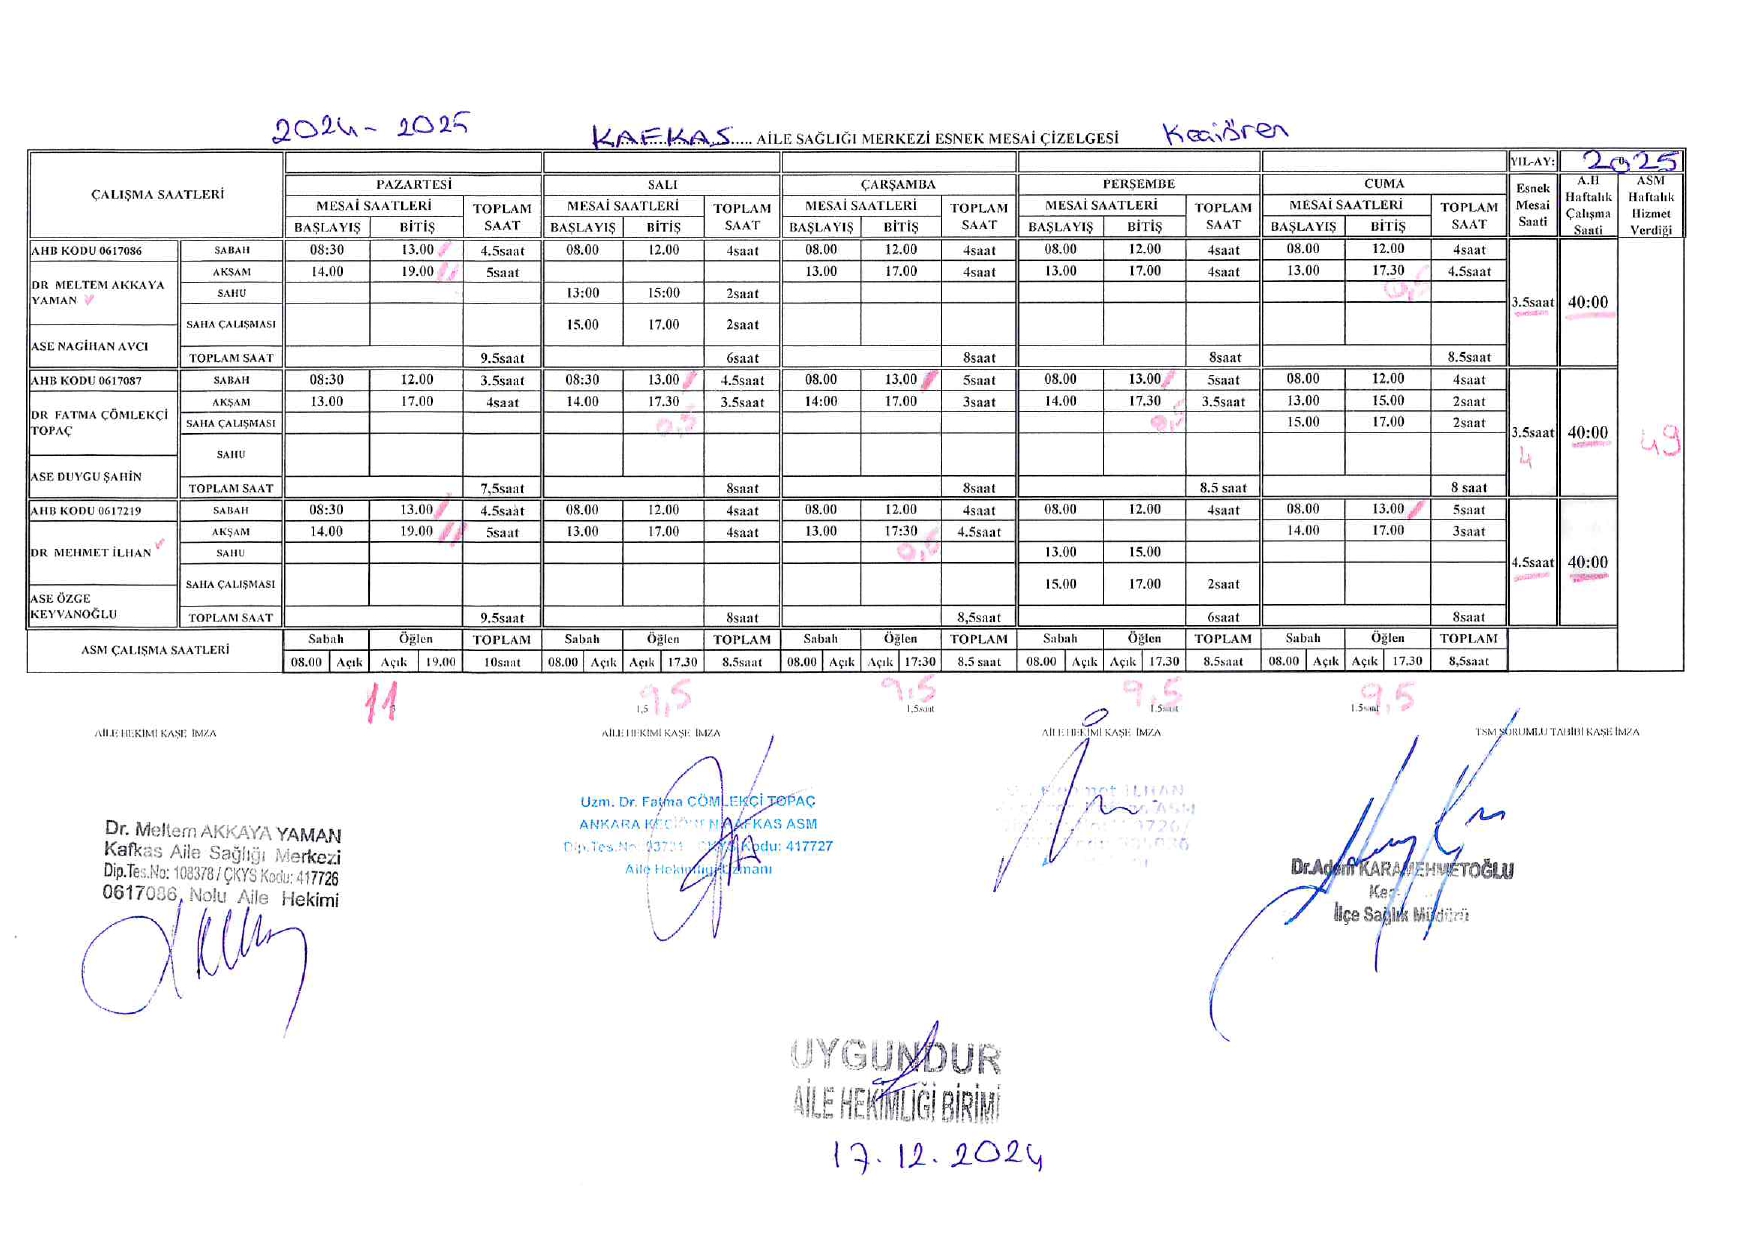 2024 - 2025 KAFKAS..... AİLE SAĞLIĞI MERKEZİ ESNEK MESAİ ÇİZELGESİ Keçiören
YIL-AY: 2025
ÇALIŞMA SAATLERİ PAZARTESİ SALI ÇARŞAMBA PERŞEMBE CUMA Esnek Mesai Saati A.H Haftalık Çalışma Saati ASM Haftalık Hizmet Verdiği
MESAİ SAATLERİ TOPLAM SAAT MESAİ SAATLERİ TOPLAM SAAT MESAİ SAATLERİ TOPLAM SAAT MESAİ SAATLERİ TOPLAM SAAT MESAİ SAATLERİ TOPLAM SAAT
BAŞLAYIŞ BİTİŞ BAŞLAYIŞ BİTİŞ BAŞLAYIŞ BİTİŞ BAŞLAYIŞ BİTİŞ BAŞLAYIŞ BİTİŞ
AHB KODU 0617086 SABAH 08:30 13.00 4.5saat 08.00 12.00 4saat 08.00 12.00 4saat 08.00 12.00 4saat 08.00 12.00 4saat
DR MELTEM AKKAYA YAMAN AKŞAM 14.00 19.00 5saat 13.00 17.00 4saat 13.00 17.00 4saat 13.00 17.30 4.5saat
SAHU 13:00 15:00 2saat 0,5 3.5saat 40:00
SAHA ÇALIŞMASI 15.00 17.00 2saat
ASE NAGİHAN AVCI
TOPLAM SAAT 9.5saat 6saat 8saat 8saat 8.5saat
AHB KODU 0617087 SABAH 08:30 12.00 3.5saat 08:30 13.00 4.5saat 08.00 13.00 5saat 08.00 13.00 5saat 08.00 12.00 4saat
DR FATMA ÇÖMLEKÇİ TOPAÇ AKŞAM 13.00 17.00 4saat 14.00 17.30 3.5saat 14:00 17.00 3saat 14.00 17.30 3.5saat 13.00 15.00 2saat
SAHA ÇALIŞMASI 0,5 0,5 15.00 17.00 2saat 3.5saat 40:00 49
SAHU 4
ASE DUYGU ŞAHİN
TOPLAM SAAT 7,5saat 8saat 8saat 8.5 saat 8 saat
AHB KODU 0617219 SABAH 08:30 13.00 4.5saat 08.00 12.00 4saat 08.00 12.00 4saat 08.00 12.00 4saat 08.00 13.00 5saat
AKŞAM 14.00 19.00 5saat 13.00 17.00 4saat 13.00 17:30 4.5saat 14.00 17.00 3saat
DR MEHMET İLHAN SAHU 13.00 15.00 4.5saat 40:00
SAHA ÇALIŞMASI 15.00 17.00 2saat
ASE ÖZGE KEYVANOĞLU
TOPLAM SAAT 9.5saat 8saat 8,5saat 6saat 8saat
ASM ÇALIŞMA SAATLERİ Sabah Öğlen TOPLAM Sabah Öğlen TOPLAM Sabah Öğlen TOPLAM Sabah Öğlen TOPLAM Sabah Öğlen TOPLAM
08.00 Açık Açık 19.00 10saat 08.00 Açık Açık 17.30 8.5saat 08.00 Açık Açık 17:30 8.5 saat 08.00 Açık Açık 17.30 8.5saat 08.00 Açık Açık 17.30 8,5saat
11 9,5 9,5 9,5 9,5
1,5 1,5saat 1.5saat 1.5saat
AİLE HEKİMİ KAŞE İMZA AİLE HEKİMİ KAŞE İMZA AİLE HEKİMİ KAŞE İMZA TSM SORUMLU TABİBİ KAŞE İMZA
Dr. Meltem AKKAYA YAMAN
Kafkas Aile Sağlığı Merkezi
Dip.Tes.No: 108378 / ÇKYS Kodu: 417726
0617086, Nolu Aile Hekimi
Uzm. Dr. Fatma CÖMLEKÇİ TOPAÇ
ANKARA KAFKAS ASM
Dip.Tes.No Kodu: 417727
Aile Hekimliği Uzmanı
İLHAN
ASM
Dr.Adem KARAMEHMETOĞLU
İlçe Sağlık Müdürü
UYGUNDUR
AİLE HEKİMLİĞİ BİRİMİ
17.12.2024